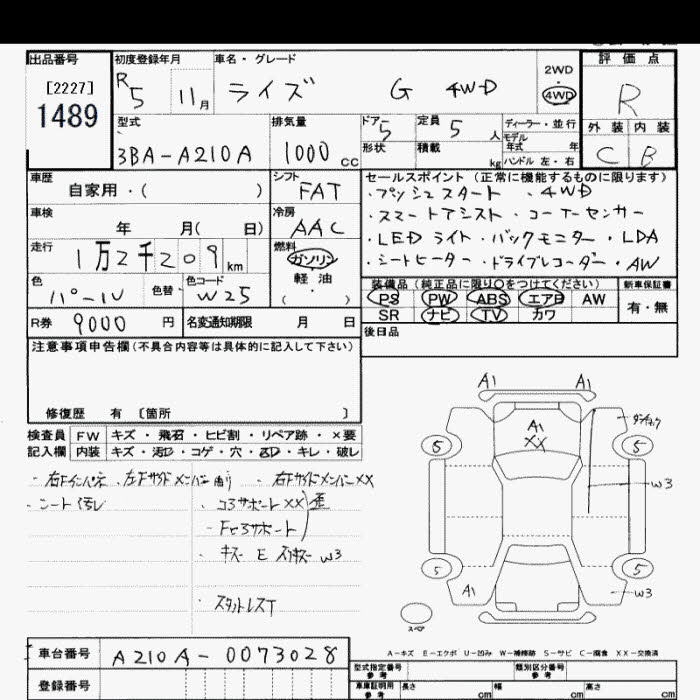 出品番号 初度登録年月 車名・グレード 評価点
[2227] R5 11月 ライズ G 4WD 2WD 4WD R
1489
型式 排気量 ドア 5 定員 5 人 ディーラー・並行 外装 内装
モデル年式 年
3BA-A210A 1000 cc 形状 積載 kg ハンドル 左・右 C B
車歴 シフト セールスポイント (正常に機能するものに限ります)
自家用・( ) FAT ・プッシュスタート ・4WD
車検 冷房 ・スマートアシスト ・コーナーセンサー
年 月( 日) AAC ・LEDライト ・バックモニター ・LDA
走行 燃料 ・シートヒーター ・ドライブレコーダー ・AW
1万2千209km ガソリン
軽油
( ・ )
装備品 (純正品に限り○をつけてください) 新車保証書
色 色替 色コード PS PW ABS エアB AW 有・無
パール W25 SR ナビ TV カワ
R券 9000 円 名変通知期限 月 日 後日品
注意事項申告欄 (不具合内容等は具体的に記入して下さい)
修復歴 有 〔箇所 〕
検査員 FW キズ・飛石・ヒビ割・リペア跡・×要
記入欄 内装 キズ・汚・コゲ・穴・・キレ・破レ
・右Fインパネ ・左Fサイドメンバー曲り ・右FサイドメンバーXX
・シート汚レ ・コアサポートXX 歪
サポート
・キズ E W3
・スタットレスT
A1 A1
A1
XX
5 5
W3
5 5
A1 W3
スペア
A-キズ E-エクボ U-凹み W-補修跡 S-サビ C-腐食 XX-交換済
車台番号 A210A-0073028 型式指定番号 参考 類別区分番号 参考
登録番号 車庫証明用 参考 長さ cm 幅 cm 高さ cm